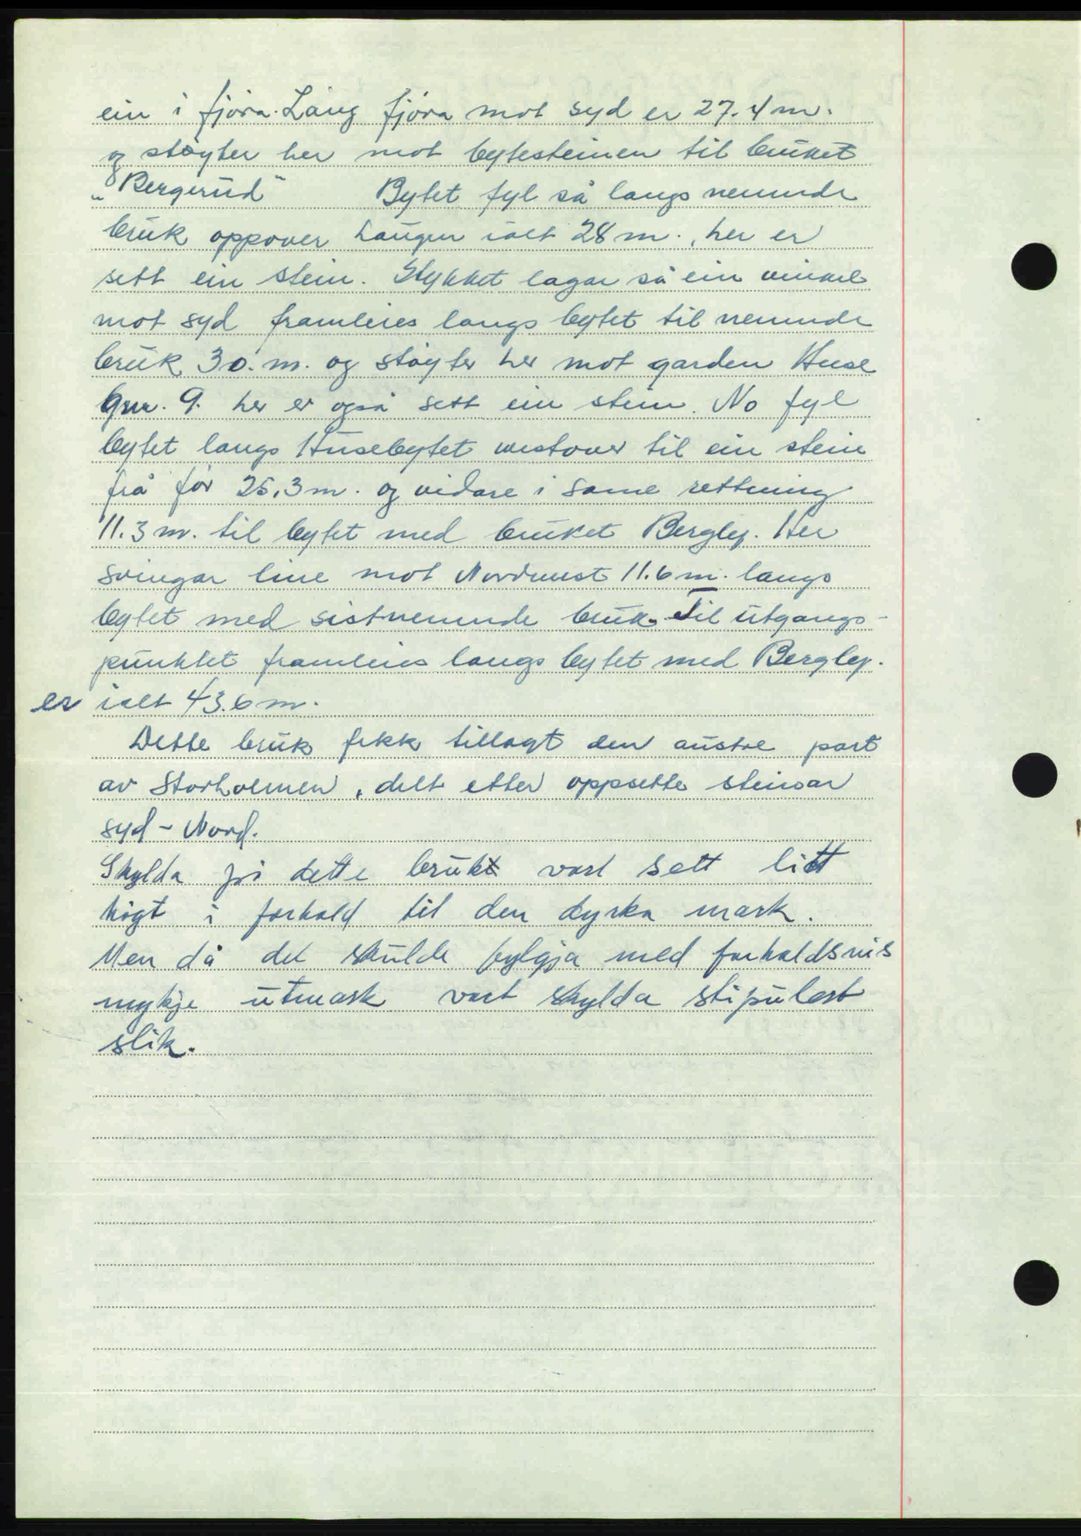 ein i fjøra. Lang fjøra mot syd er 27.4 m.
og støyter her mot bytesteinen til bruket
„Bergerud" Bytet fyl så langs nemnde
bruk oppover haugen ialt 28 m., her er
sett ein stein. Stykket lagar så ein vinkel
mot syd framleies langs bytet til nemnde
bruk 30. m. og støyter her mot garden Huse
Gnr. 9. her er også sett ein stein. No fyl
bytet langs Husebytet vestover til ein stein
frå før 25,3 m. og vidare i same rettning
11.3 m. til bytet med bruket Bergly. Her
svingar line mot Nordvest 11.6 m. langs
bytet med sistnemnde bruk. Til utgangs-
punktet framleies langs bytet med Bergly.
er ialt 43.6 m.
Dette bruk fekk tillagt den austre part
av Storholmen, delt etter oppsette steinar
syd - Nord.
Skylda på dette bruk vart sett litt
høgt i forhold til den dyrka mark.
Men då det skulde fylgja med forholdsvis
mykje utmark vart skylda stipulert
slik.